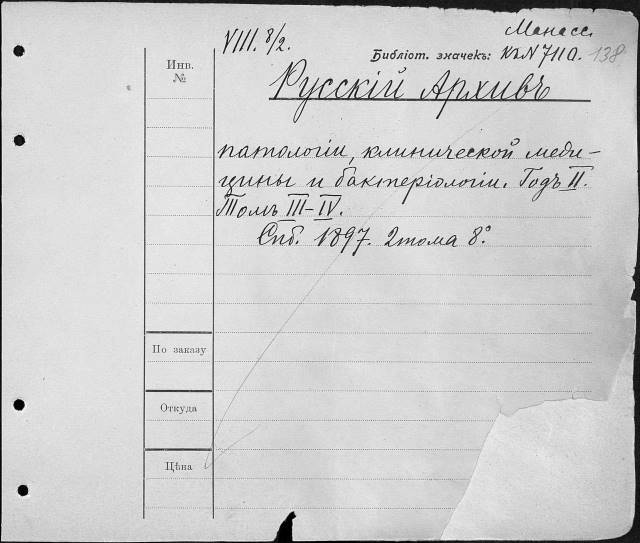 Манасс.
VIII. 8/2.
Библіот. значекъ: КъN 7110. 138
Инв.
№
Русскій Архивъ
патологіи, клинической меди-
цины и бактеріологіи. Годъ II.
Томъ III-IV.
Спб. 1897. 2 тома 8.°
По заказу
Откуда
Цѣна